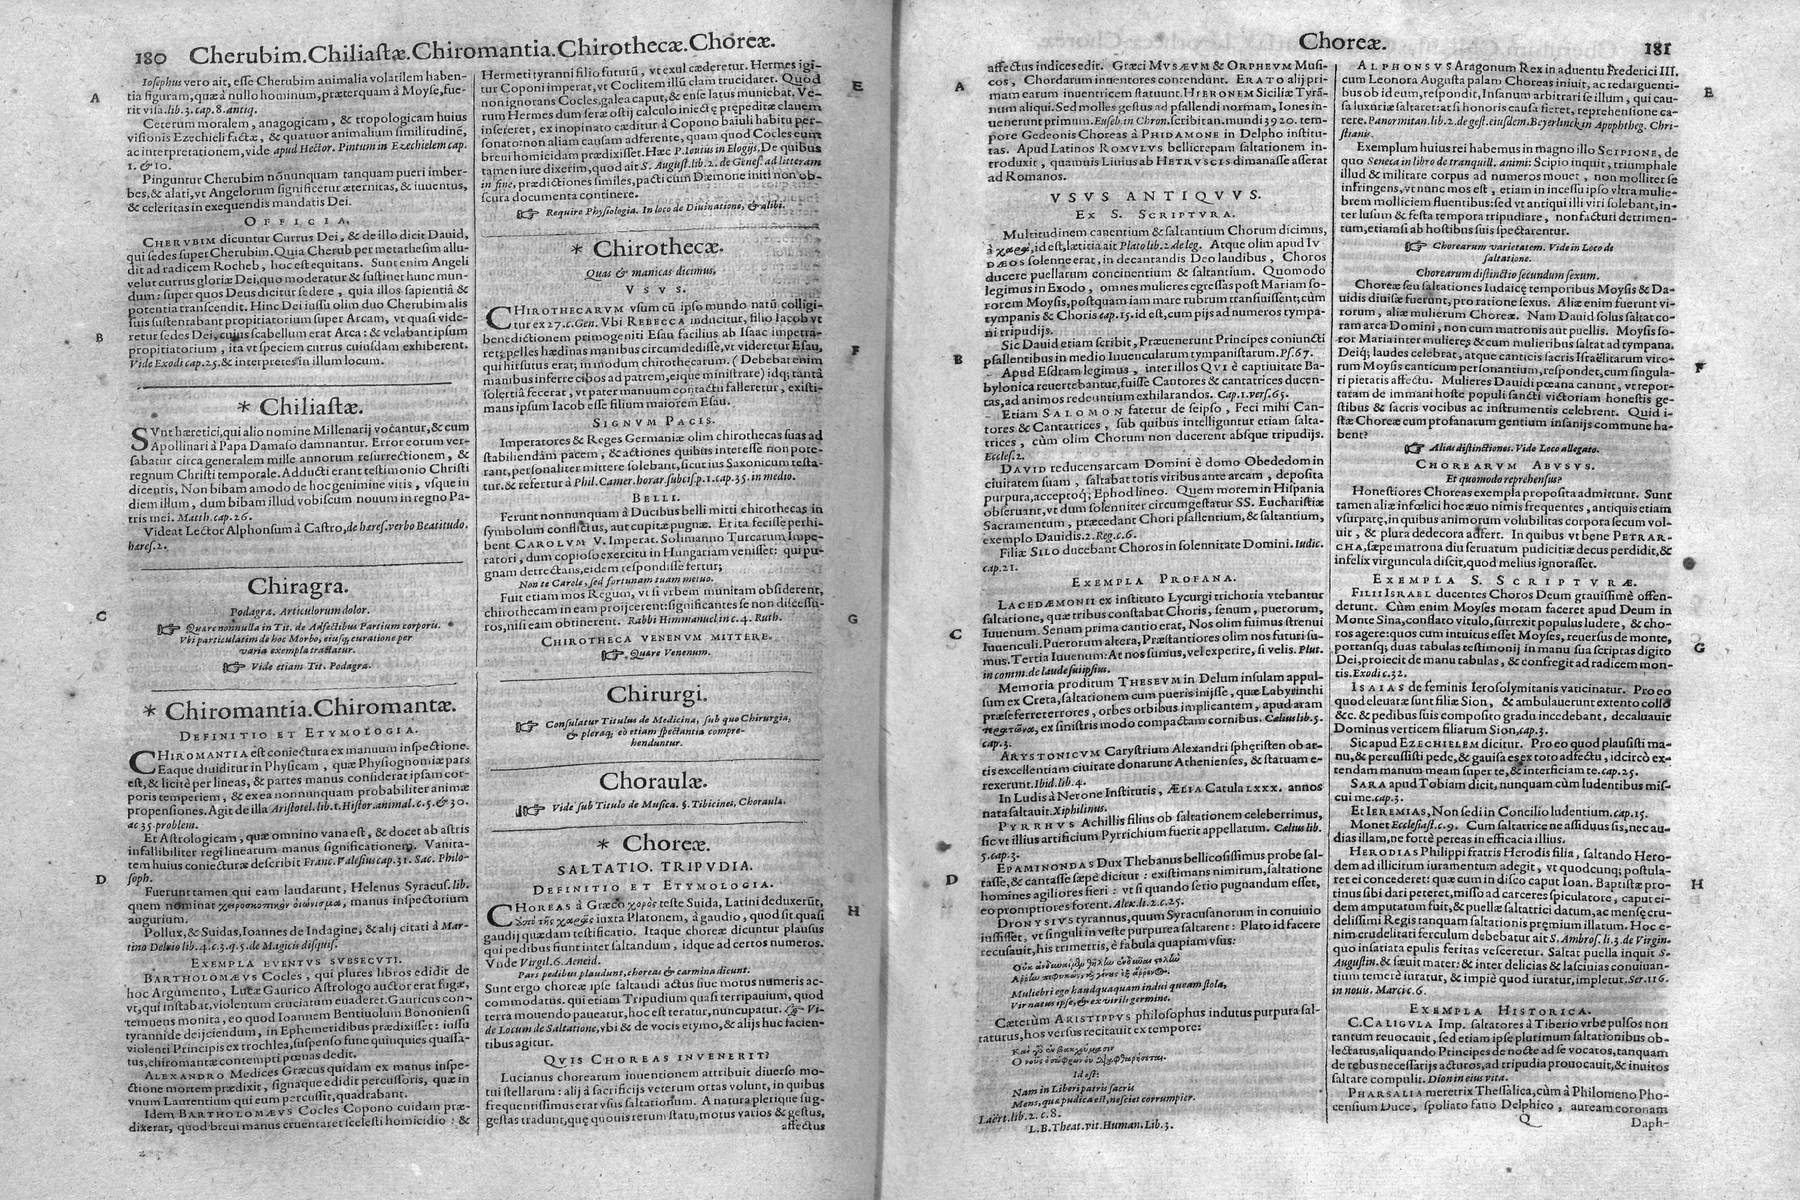 180 Cherubim. Chiliastæ. Chiromantia. Chirothecæ. Choreæ.
Iosephus vero ait, esse Cherubim animalia volatilem haben-
tia figuram, quæ à nullo hominum, præterquam à Moyse, fue-
rit visa. lib. 3. cap. 8. antiq.
Ceterum moralem, anagogicam, & tropologicam huius
visionis Ezechieli factæ, & quatuor animalium similitudinē,
ac interpretationem, vide apud Hector. Pintum in Ezechielem cap.
1. & 10.
Pinguntur Cherubim nōnunquam tanquam pueri imber-
bes, & alati, vt Angelorum significetur æternitas, & iuuentus,
& celeritas in exequendis mandatis Dei.
OFFICIA.
CHERVBIM dicuntur Currus Dei, & de illo dicit Dauid,
qui sedes super Cherubim. Quia Cherub per metathesim allu-
dit ad radicem Rocheb, hoc est equitans. Sunt enim Angeli
velut currus gloriæ Dei, quo moderatur & sustinet hunc mun-
dum: super quos Deus dicitur sedere, quia illos sapientiâ &
potentia transcendit. Hinc Dei iussu olim duo Cherubim alis
suis sustentabant propitiatorium super Arcam, vt quasi vide-
retur sedes Dei, cuius scabellum erat Arca: & velabant ipsum
propitiatorium, ita vt speciem currus cuiusdam exhiberent.
Vide Exodi cap. 25. & interpretes in illum locum.
* Chiliastæ.
SVnt hæretici, qui alio nomine Millenarij vocantur, & cum
Apollinari à Papa Damaso damnantur. Error eorum ver-
sabatur circa generalem mille annorum resurrectionem, &
regnum Christi temporale. Adducti erant testimonio Christi
dicentis, Non bibam amodo de hoc genimine vitis, vsque in
diem illum, dum bibam illud vobiscum nouum in regno Pa-
tris mei. Matth. cap. 26.
Videat Lector Alphonsum à Castro, de hæres. verbo Beatitudo.
hæres. 2.
Chiragra.
Podagra. Articulorum dolor.
☞ Quære nonnulla in Tit. de Adfectibus Partium corporis.
Vbi particulatim de hoc Morbo, eiusq; curatione per
varia exempla tractatur.
☞ Vide etiam Tit. Podagra.
* Chiromantia. Chiromantæ.
DEFINITIO ET ETYMOLOGIA.
CHIROMANTIA est coniectura ex manuum inspectione.
Ea quæ diuiditur in Physicam, quæ Physiognomiæ pars
est, & licitè per lineas, & partes manus considerat ipsam cor-
poris temperiem, & ex ea nonnunquam probabiliter animæ
propensiones. Agit de illa Aristotel. lib. 1. Histor. animal. c. 5. & 30.
ac 35. problem.
Et Astrologicam, quæ omnino vana est, & docet ab astris
infallibiliter regi linearum manus significationem. Vanita-
tem huius coniecturæ describit Franc. Valesius cap. 31. Sac. Philo-
soph.
Fuerunt tamen qui eam laudarunt, Helenus Syracus. lib.
quem nominat manus inspectorium
augurium.
Pollux, & Suidas, Ioannes de Indagine, & alij citati à Mar-
tino Delrio lib. 4. c. 3. q. 5. de Magicis disquis.
EXEMPLA EVENTVS SVBSECVTI.
BARTHOLOMÆVS Cocles, qui plures libros edidit de
hoc Argumento, Lucæ Gaurico Astrologo auctor erat fugæ,
vt, qui instabat, violentum cruciatum euaderet. Gauricus con-
temnens monita, eo quod Ioannem Bentiuolum Bononiensi
tyrannide deijciendum, in Ephemeridibus prædixisset: iussu
violenti Principis ex trochlea, suspenso fune quinquies quassa-
tus, chiromantæ contempti pœnas dedit.
ALEXANDRO Medices Græcus quidam ex manus inspe-
ctione mortem prædixit, signaque edidit percussoris, quæ in
vnum Laurentium qui eum percussit, quadrabant.
Idem BARTHOLOMÆVS Cocles Copono cuidam præ-
dixerat, quod breui manus cruentaret scelesti homicidio: &
Hermeti tyranni filio futurū, vt exul cæderetur. Hermes igi-
tur Coponi imperat, vt Coclitem illū clam trucidaret. Quod
non ignorans Cocles, galea caput, & ense latus muniebat. Ve-
rum Hermes dum seræ ostij calculo iniectę prępeditæ clauem
insereret, ex inopinato cæditur à Copono baiuli habitu per-
sonato: non aliam causam adferente, quam quod Cocles eum
breui homicidam prædixisset. Hæc P. Iouius in Elogijs. De quibus
tamen iure dixerim, quod ait S. August. lib. 2. de Genes. ad litteram
in fine, prædictiones similes, pacti cum Dæmone initi non ob-
scura documenta continere.
☞ Require Physiologia. In loco de Diuinatione, & alibi.
* Chirothecæ.
Quas & manicas dicimus,
VSVS.
CHIROTHECARVM vsum cū ipso mundo natū colligi-
tur ex 27. c. Gen. Vbi REBECCA inducitur, filio Iacob vt
benedictionem primogeniti Esau facilius ab Isaac impetra-
ret; pelles hædinas manibus circumdedisse, vt videretur Esau,
qui hirsutus erat; in modum chirothecarum. (Debebat enim
manibus inferre cibos ad patrem, eique ministrare) idq; tantâ
solertiâ fecerat, vt pater manuum contactu falleretur, existi-
mans ipsum Iacob esse filium maiorem Esau.
SIGNVM PACIS.
Imperatores & Reges Germaniæ olim chirothecas suas ad
stabiliendam pacem, & actiones quibus interesse non pote-
rant, personaliter mittere solebant, sicut ius Saxonicum testa-
tur. & refertur à Phil. Camer. horar. subcis. p. 1. cap. 35. in medio.
BELLI.
Ferunt nonnunquam à Ducibus belli mitti chirothecas in
symbolum conflictus, aut cupitæ pugnæ. Et ita fecisse perhi-
bent CAROLVM V. Imperat. Solimanno Turcarum Impe-
ratori, dum copioso exercitu in Hungariam venisset: qui pu-
gnam detrectans, eidem respondisse fertur;
Non te Carole, sed fortunam tuam metuo.
Fuit etiam mos Regum, vt si vrbem munitam obsiderent,
chirothecam in eam proijcerent: significantes se non discessu-
ros, nisi eam obtinerent. Rabbi Himmanuel in c. 4. Ruth.
CHIROTHECA VENENVM MITTERE.
☞ Quære Venenum.
Chirurgi.
☞ Consulatur Titulus de Medicina, sub quo Chirurgia,
& pleraq; eò etiam spectantia compre-
henduntur.
Choraulæ.
☞ Vide sub Titulo de Musica. §. Tibicines, Choraulæ.
* Choreæ.
SALTATIO. TRIPVDIA.
DEFINITIO ET ETYMOLOGIA.
CHOREAS à Græco χορὸς teste Suida, Latini deduxerūt,
ἀπὸ τῆς χαρᾶς iuxta Platonem, à gaudio, quod sit quasi
gaudij quædam testificatio. Itaque choreæ dicuntur plausus
qui pedibus fiunt inter saltandum, idque ad certos numeros.
Vnde Virgil. 6. Aeneid.
Pars pedibus plaudunt, choreas & carmina dicunt.
Sunt ergo choreæ ipse saltandi actus siue motus numeris ac-
commodatus. qui etiam Tripudium quasi terripauium, quod
terra mouendo paueatur, hoc est teratur, nuncupatur. ☞ Vi-
de Locum de Saltatione, vbi & de vocis etymo, & alijs huc facien-
tibus agitur.
QVIS CHOREAS INVENERIT?
Lucianus chorearum inuentionem attribuit diuerso mo-
tui stellarum: alij à sacrificijs veterum ortas volunt, in quibus
frequentissimus erat vsus saltationum. A natura plerique sug-
gestas tradunt, quę quouis rerum statu, motus varios & gestus,
affectus
A
B
C
D
E
F
G
H
Choreæ. 181
affectus indices edit. Græci MVSÆVM & ORPHEVM Musi-
cos, Chordarum inuentores contendunt. ERATO alij pri-
mam earum inuentricem statuunt. HIERONEM Siciliæ Tyrā-
num aliqui. Sed molles gestus ad psallendi normam, Iones in-
uenerunt primum. Euseb. in Chron. scribit an. mundi 3920. tem-
pore Gedeonis Choreas à PHIDAMONE in Delpho institu-
tas. Apud Latinos ROMVLVS bellicrepam saltationem in-
troduxit, quamuis Liuius ab HETRVSCIS dimanasse asserat
ad Romanos.
VSVS ANTIQVVS.
EX S. SCRIPTVRA.
Multitudinem canentium & saltantium Chorum dicimus,
à χαρᾶς, id est, lætitia ait Plato lib. 2. de leg. Atque olim apud IV
DÆOS solenne erat, in decantandis Deo laudibus, Choros
ducere puellarum concinentium & saltantium. Quomodo
legimus in Exodo, omnes mulieres egressas post Mariam so-
rorem Moysis, postquam iam mare rubrum transiuissent; cùm
tympanis & Choris cap. 15. id est, cum pijs ad numeros tympa-
ni tripudijs.
Sic Dauid etiam scribit, Præuenerunt Principes coniuncti
psallentibus in medio Iuuencularum tympanistarum. Ps. 67.
Apud Esdram legimus, inter illos QVI è captiuitate Ba-
bylonica reuertebantur, fuisse Cantores & cantatrices ducen-
tas, ad animos redeuntium exhilarandos. Cap. 1. vers. 65.
Etiam SALOMON fatetur de seipso, Feci mihi Can-
tores & Cantatrices, sub quibus intelliguntur etiam salta-
trices, cùm olim Chorum non ducerent absque tripudijs.
Eccles. 2.
DAVID reducens arcam Domini è domo Obededom in
ciuitatem suam, saltabat totis viribus ante arcam, deposita
purpura, acceptoq; Ephod lineo. Quem morem in Hispania
obseruant, vt dum solenniter circumgestatur SS. Eucharistiæ
Sacramentum, præcedant Chori psallentium, & saltantium,
exemplo Dauidis. 2. Reg. c. 6.
Filiæ SILO ducebant Choros in solennitate Domini. Iudic.
cap. 21.
EXEMPLA PROFANA.
LACEDÆMONII ex instituto Lycurgi trichoria vtebantur
saltatione, quæ tribus constabat Choris, senum, puerorum,
Iuuenum. Senum prima cantio erat, Nos olim fuimus strenui
Iuuenculi. Puerorum altera, Præstantiores olim nos futuri su-
mus. Tertia Iuuenum: At nos sumus, vel experire, si velis. Plut.
in comm. de laude sui ipsius.
Memoria proditum THESEVM in Delum insulam appul-
sum ex Creta, saltationem cum pueris inijsse, quæ Labyrinthi
præseferret errores, orbes orbibus implicantem, apud aram
ex sinistris modo compactam cornibus. Cælius lib. 5.
cap. 3.
ARYSTONICVM Carystrium Alexandri sphęristen ob ar-
tis excellentiam ciuitate donarunt Athenienses, & statuam e-
rexerunt. Ibid. lib. 4.
In Ludis à Nerone Institutis, ÆLIA Catula LXXX. annos
nata saltauit. Xiphilinus.
PYRRHVS Achillis filius ob saltationem celeberrimus,
sic vt illius artificium Pyrrichium fuerit appellatum. Cælius lib.
5. cap. 3.
EPAMINONDAS Dux Thebanus bellicosissimus probe sal-
tasse, & cantasse sæpe dicitur: existimans nimirum, saltatione
homines agiliores fieri: vt si quando serio pugnandum esset,
eo promptiores forent. Alex. li. 2. c. 25.
DIONYSIVS tyrannus, quum Syracusanorum in conuiuio
iussisset, vt singuli in veste purpurea saltarent: Plato id facere
recusauit, his trimetris, è fabula quapiam vsus:
Muliebri ego haudquaquam indui queam stola,
Vir natus ipse, & ex virili germine.
Cæterùm ARISTIPPVS philosophus indutus purpura sal-
taturus, hos versus recitauit ex tempore:
Id est:
Nam in Liberi patris sacris
Mens, quæ pudica est, nesciet corrumpier.
Laërt. lib. 2. c. 8.
L. B. Theat. vit. Human. Lib. 3.
ALPHONSVS Aragonum Rex in aduentu Frederici III.
cum Leonora Augusta palam Choreas iniuit, ac redarguenti-
bus ob id eum, respondit, Insanum arbitrari se illum, qui cau-
sa luxuriæ saltaret: at si honoris causa fieret, reprehensione ca-
rere. Panormitan. lib. 2. de gest. eiusdem. Beyerlinck in Apophtheg. Chri-
stianis.
Exemplum huius rei habemus in magno illo SCIPIONE, de
quo Seneca in libro de tranquill. animi: Scipio inquit, triumphale
illud & militare corpus ad numeros mouet, non molliter se
infringens, vt nunc mos est, etiam in incessu ipso vltra mulie-
brem molliciem fluentibus: sed vt antiqui illi viri solebant, in-
ter lusum & festa tempora tripudiare, non facturi detrimen-
tum, etiamsi ab hostibus suis spectarentur.
☞ Chorearum varietatem. Vide in Loco de
saltatione.
Chorearum distinctio secundum sexum.
Choreæ seu saltationes Iudaicę temporibus Moysis & Da-
uidis diuisæ fuerunt, pro ratione sexus. Aliæ enim fuerunt vi-
rorum, aliæ mulierum Choreæ. Nam Dauid solus saltat co-
ram arca Domini, non cum matronis aut puellis. Moysis so-
ror Maria inter mulieres & cum mulieribus saltat ad tympana.
Deiq; laudes celebrat, atque canticis sacris Israëlitarum viro-
rum Moysis canticum personantium, respondet, cum singula-
ri pietatis affectu. Mulieres Dauidi pœana canunt, vt repor-
tatam de immani hoste populi sancti victoriam honestis ge-
stibus & sacris vocibus ac instrumentis celebrent. Quid i-
stæ Choreæ cum profanarum gentium insanijs commune ha-
bent?
☞ Alias distinctiones. Vide Loco allegato.
CHOREARVM ABVSVS.
Et quomodo reprehensus?
Honestiores Choreas exempla proposita admittunt. Sunt
tamen aliæ infœlici hoc æuo nimis frequentes, antiquis etiam
vsurpatę, in quibus animorum volubilitas corpora secum vol-
uit, & plura dedecora adfert. In quibus vt bene PETRAR-
CHA, sæpe matrona diu seruatum pudicitiæ decus perdidit, &
infelix virguncula discit, quod melius ignorasset.
EXEMPLA S. SCRIPTVRÆ.
FILII ISRAEL ducentes Choros Deum grauissimè offen-
derunt. Cùm enim Moyses moram faceret apud Deum in
Monte Sina, conflato vitulo, surrexit populus ludere, & cho-
ros agere: quos cum intuitus esset Moyses, reuersus de monte,
portansq; duas tabulas testimonij in manu sua scriptas digito
Dei, proiecit de manu tabulas, & confregit ad radicem mon-
tis. Exodi c. 32.
ISAIAS de feminis Ierosolymitanis vaticinatur. Pro eo
quod eleuatæ sunt filiæ Sion, & ambulauerunt extento collo
&c. & pedibus suis composito gradu incedebant, decaluauit
Dominus verticem filiarum Sion, cap. 3.
Sic apud EZECHIELEM dicitur. Pro eo quod plausisti ma-
nu, & percussisti pede, & gauisa es ex toto adfectu, idcircò ex-
tendam manum meam super te, & interficiam te. cap. 25.
SARA apud Tobiam dicit, nunquam cùm ludentibus mis-
cui me. cap. 3.
Et IEREMIAS, Non sedi in Concilio ludentium. cap. 15.
Monet Ecclesiast. c. 9. Cum saltatrice ne assiduus sis, nec au-
dias illam, ne fortè pereas in efficacia illius.
HERODIAS Philippi fratris Herodis filia, saltando Hero-
dem ad illicitum iuramentum adegit, vt quodcunq; postula-
ret ei concederet: quæ cum in disco caput Ioan. Baptistæ pro-
tinus sibi dari peteret, misso ad carceres spiculatore, caput ei-
dem amputatum fuit, & puellæ saltatrici datum, ac mensę cru-
delissimi Regis tanquam saltationis pręmium illatum. Hoc e-
nim crudelitati ferculum debebatur ait S. Ambros. li. 3. de Virgin.
quo insatiata epulis feritas vesceretur. Saltat puella inquit S.
Augustin. & sæuit mater: & inter delicias & lasciuias conuiuan-
tium temerè iuratur, & impiè quod iuratur, impletur. Ser. 116.
in nouis. Marci c. 6.
EXEMPLA HISTORICA.
C. CALIGVLA Imp. saltatores à Tiberio vrbe pulsos non
tantum reuocauit, sed etiam ipse plurimum saltationibus ob-
lectatus, aliquando Principes de nocte ad se vocatos, tanquam
de rebus necessarijs acturos, ad tripudia prouocauit, & inuitos
saltare compulit. Dion in eius vita.
PHARSALIA meretrix Thessalica, cùm à Philomeno Pho-
censium Duce, spoliato fano Delphico, auream coronam
Q
Daph-
A
B
C
D
E
F
G
H